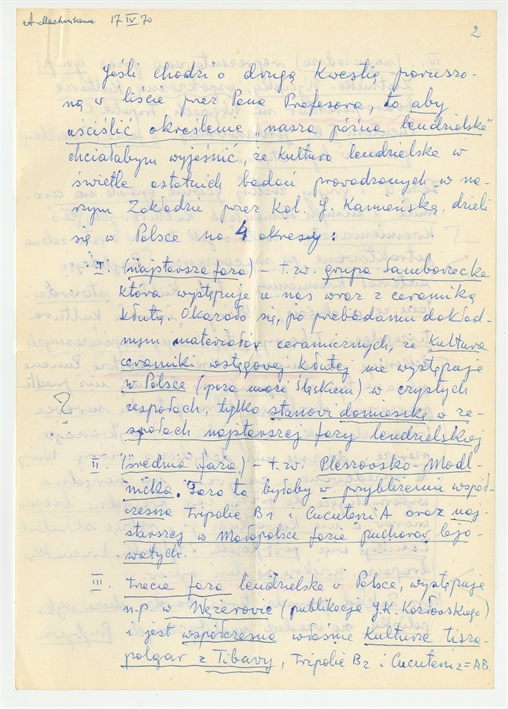 A. Machnikowa 17 IV 70
2
Jeśli chodzi o drugą kwestię poruszo-
ną w liście przez Pana Profesora, to aby
uściślić określenie „nasza późna lendzielska”
chciałabym wyjaśnić, że kultura lendzielska w
świetle ostatnich badań prowadzonych w na-
szym Zakładzie przez kol. J. Kamieńską, dzieli
się w Polsce na 4 okresy:
I. (najstarsza faza) – t.zw. grupa Samborzecka
która występuje u nas wraz z ceramiką
kłutą. Okazało się, po przebadaniu dokład-
nym materiałów ceramicznych, że kultura
ceramiki wstęgowej kłutej nie występuje
w Polsce (poza może Śląskiem) w czystych
zespołach, tylko stanowi domieszkę w ze-
społach najstarszej fazy lendzielskiej
II. (średnia faza) – t.zw. Pleszowsko-Modl-
nicka. Faza ta byłaby w przybliżeniu współ-
czesna Tripolie B1 i Cucuteni A oraz naj-
starszej w Małopolsce fazie pucharów lejo-
watych.
III. trzecia faza lendzielska w Polsce, występuje
n.p. w Niezarowie (publikacja J.K. Kozłowskiego)
i jest współczesna właśnie kulturze tisza-
polgar z Tibavy, Tripolie B2 i Cucuteni 2=AB.